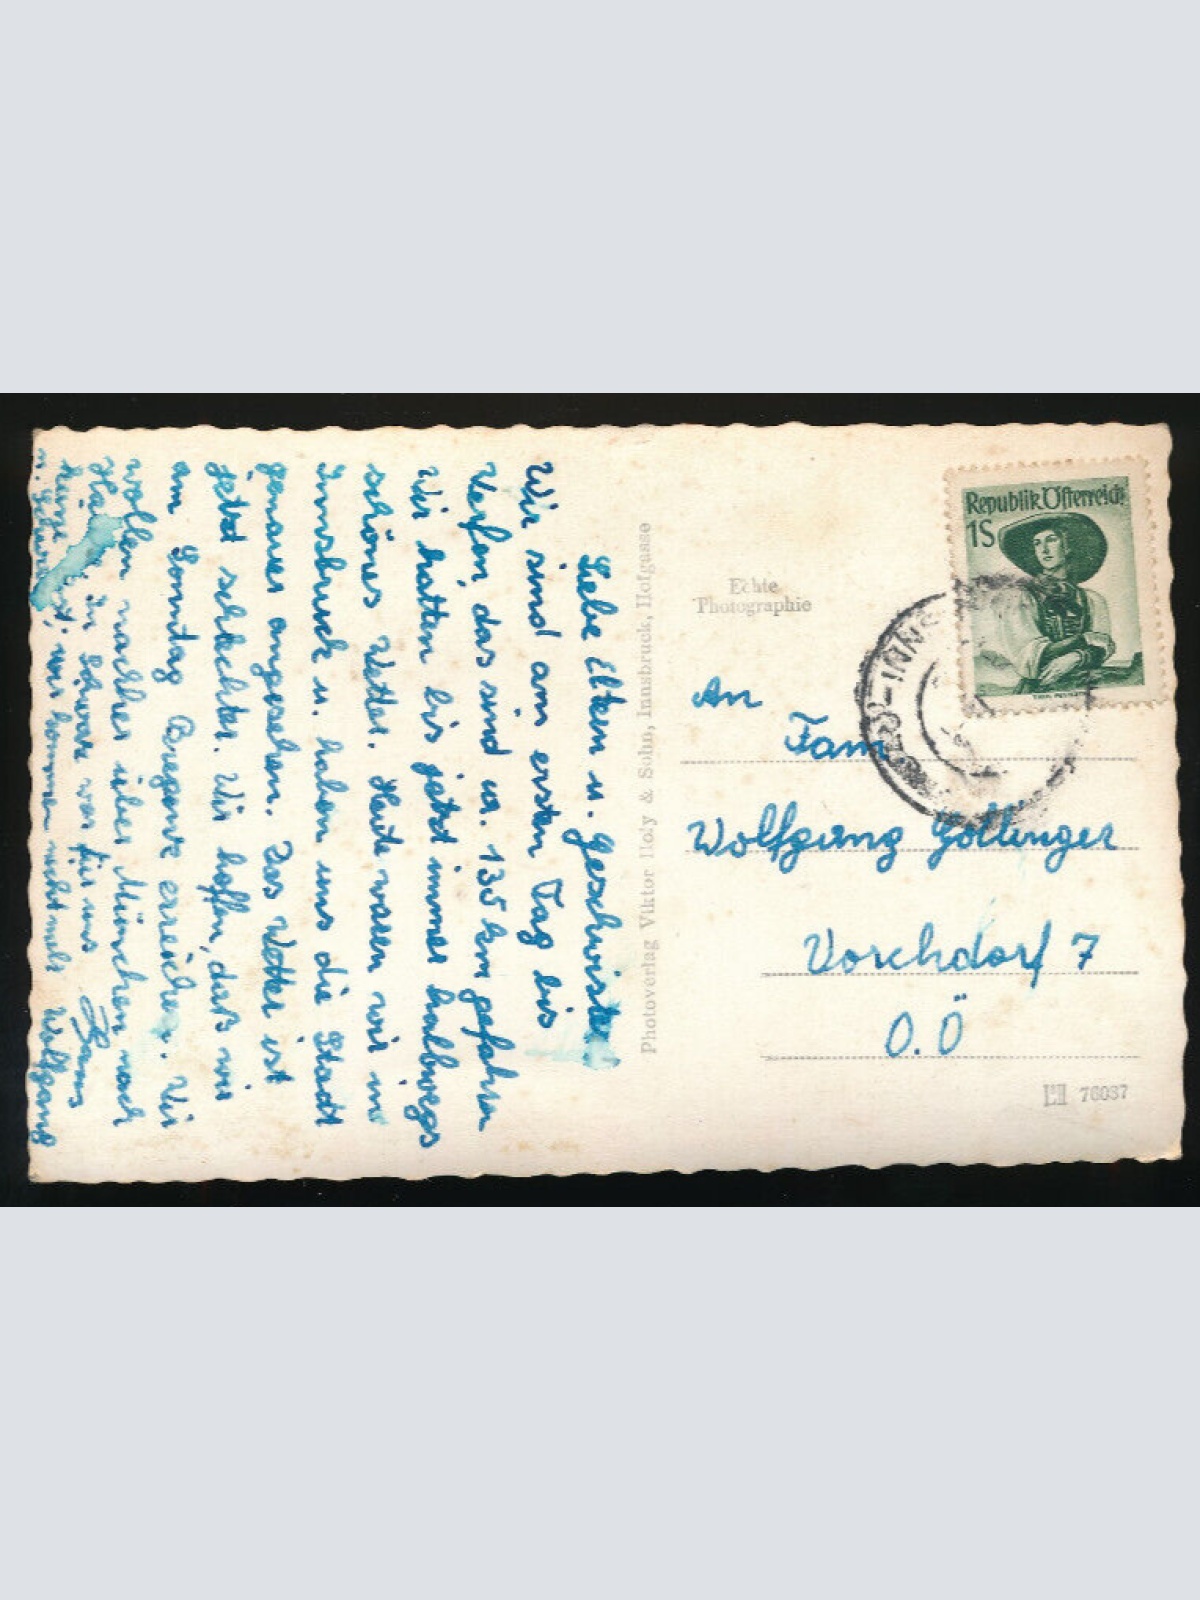 Liebe Eltern u. Geschwister!
Wir sind am ersten Tag bis
Werfen, das sind ca. 135 km gefahren
Wir hatten bis jetzt immer halbwegs
schönes Wetter. Heute waren wir in
Innsbruck u. haben uns die Stadt
genauer angesehen. Das Wetter ist
jetzt schlechter. Wir hoffen, dass wir
am Sonntag Bregenz erreichen. Wir
wollen nachher über München nach
in Schwaz war für uns
wir kommen nicht mehr
Hans
Wolfgang
Photoverlag Viktor Holy & Sohn, Innsbruck, Hofgasse
Echte
Photographie
Republik Österreich
1S
INNS
An
Fam.
Wolfgang Göttinger
Vorchdorf 7
O.Ö
76037